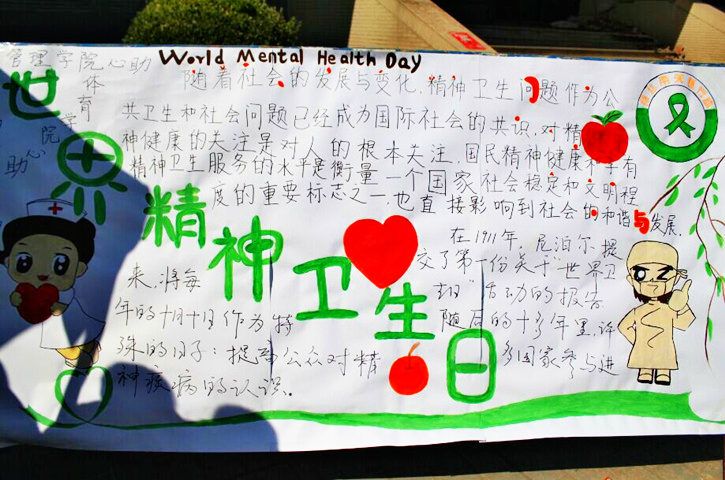 管理学院心助
体育学院
心助
World Mental Health Day
世界精神卫生日
随着社会的发展与变化，精神卫生问题作为公
共卫生和社会问题已经成为国际社会的共识，对精
神健康的关注是对人的根本关注，国民精神健康和享有
精神卫生服务的水平是衡量一个国家社会稳定和文明程
度的重要标志之一，也直接影响到社会的和谐与发展。
在1911年，尼泊尔提
交了第一份关于"世界卫
活动的报告
随后的十多年里，许
多国家参与进
来，将每
年的十月十日作为特
殊的日子：提高公众对精
神疾病的认识。